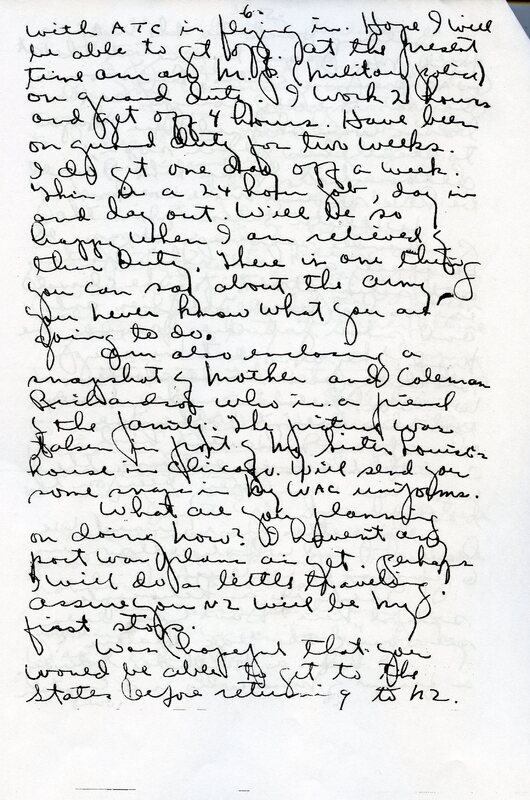 6.
with ATC in flying in. Hope I will
be able to get off. At the present
time am an M.P. (military police)
on guard duty. I work 2 hours
and get off 4 hours. Have been
on guard duty for two weeks.
I do get one day off a week.
This is a 24 hour job, day in
and day out. Will be so
happy when I am relieved of
this duty. There is one thing
you can say about the army,
you never know what you are
going to do.
Am also enclosing a
snapshot of Mother and Coleman
Richardson who is a friend
of the family. The picture was
taken in front of my sister Louise's
house in Chicago. Will send you
some snaps in my WAC uniforms.
What are you planning
on doing now? I haven't any
post war plans as yet. Perhaps
I will do a little traveling.
assure you NZ will be my
first stop.
Was hopeful that you
would be able to get to the
States before returning to NZ.